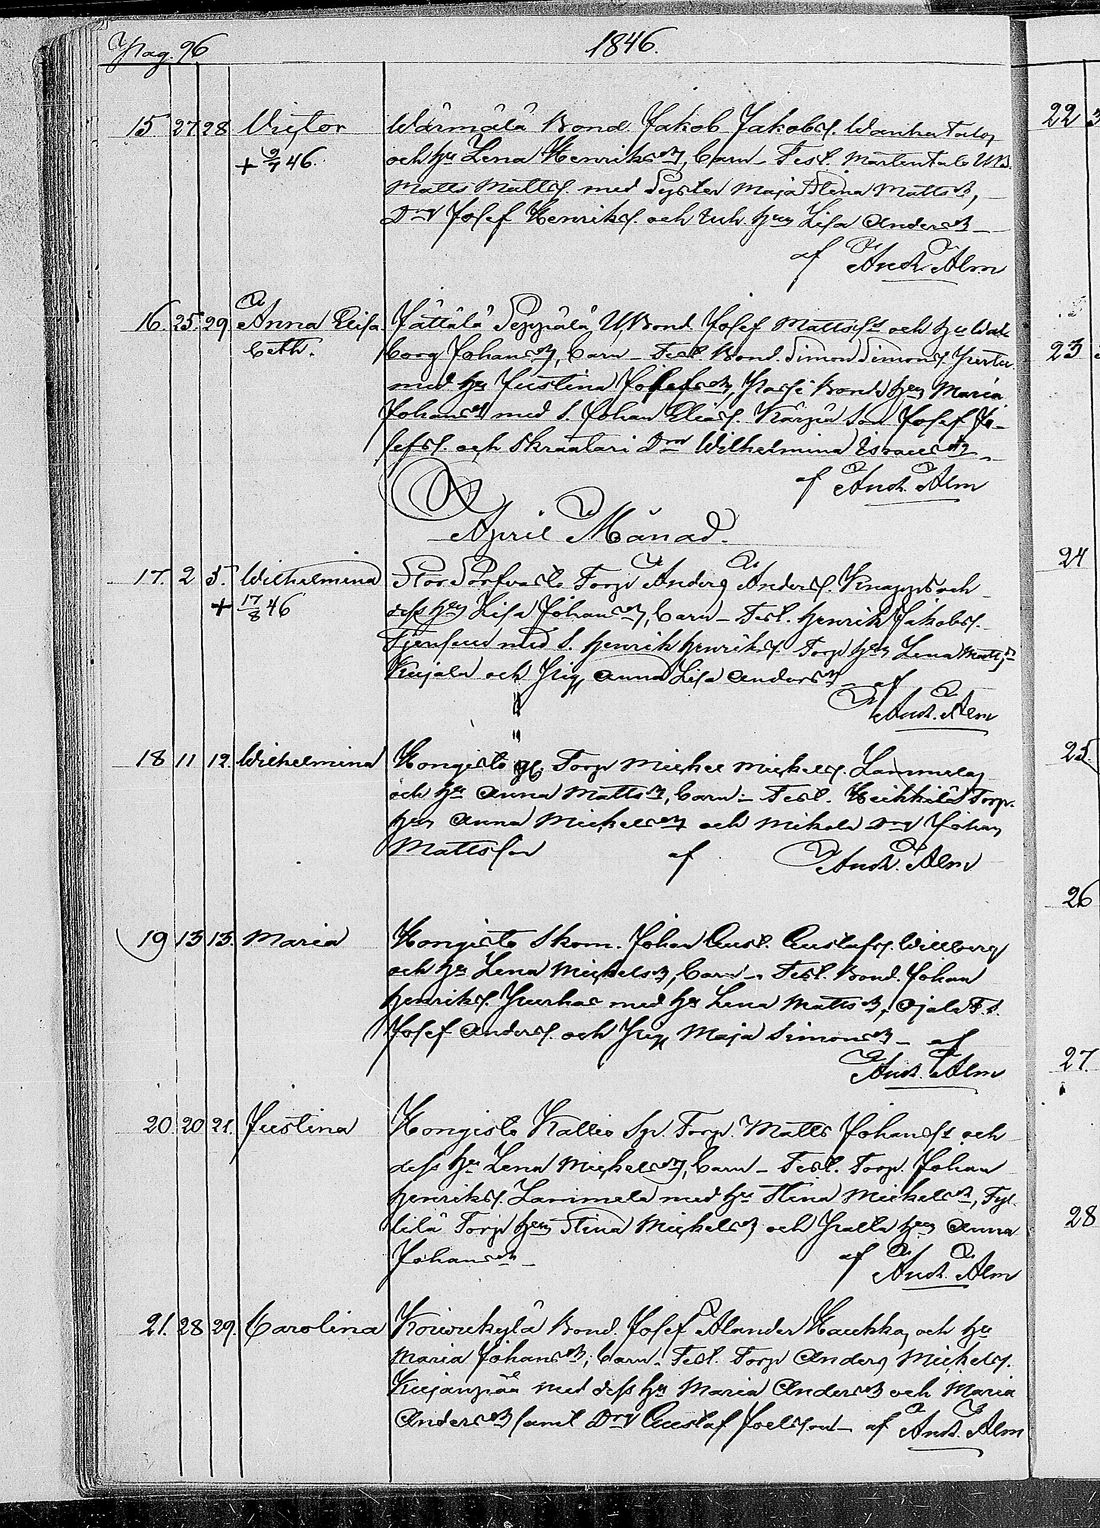 Pag. 96
1846.
15. 27 28 Victor Wärmälä Bond. Jakob Jakobs. Wanhatalo,
+ 9/7 46. och h. Lena Henriksdr, barn – Test. Martentalo UB.
Matts Matts. med Syster Maja Stina Mattsdr,
Drg Josef Henriks. och Enk. hu Lisa Andersdr –
af And. Alm
16. 25. 29 Anna Elisa Jättälä Seppälä, UBond Josef Mattss. och hu Wal
beth. borg Johansdr, barn – Test. Bond. Simon Simons.
med hu Justina Josefsdr, Bond hu Maria
Johansdr med S. Johan Elias. Kärpä Son Josef Jo-
sefs. och Skraatari Drn Wilhelmina
af And. Alm
April Månad.
17. 2 5. Wilhelmina Torp Anders Anders. Knapps och
+ 17/8 46 dess hu Lisa Johansdr, barn – Test. Henrik Jakobs.
med S. Henrik Henriks. Torp hu Lena Matts
Kujala och Pig. Anna Lisa Andersdr – af
And. Alm
18 11 12. Wilhelmina Kongisto Torp Michel Michels. Lammela,
och hu Anna Mattsdr, barn – Test. Heikkilä Torp.
hu Anna Michelsdr och Mikola Drg Johan
Mattsson af And. Alm
19 13 13. Maria Kongisto Skom. Johan Gust. Gustafs. Willberg
och hu Lena Michelsdr, barn – Test. Bond. Johan
Henriks. med hu Lena Mattsdr, Ojala
Josef Anders. och Pig. Maja Simonsdr – af
And. Alm
20. 20 21. Justina Kongisto Kallio Torp. Matts Johanss. och
dess hu Lena Michelsdr, barn – Test. Torp. Johan
Henriks. Lammela med hu Stina Michelsdr,
Torp hu Stina Michelsdr och hu Anna
Johansdr – af And. Alm
21. 28 29. Carolina Bond. Josef Alander Haukka, och hu
Maria Johansdr, barn – Test. Torp Anders Michels.
Kujanpää med dess hu Maria Andersdr och Maria
Andersdr samt Drg Gustaf Joelsson – af And. Alm
22 3
23
24
25.
26
27
28